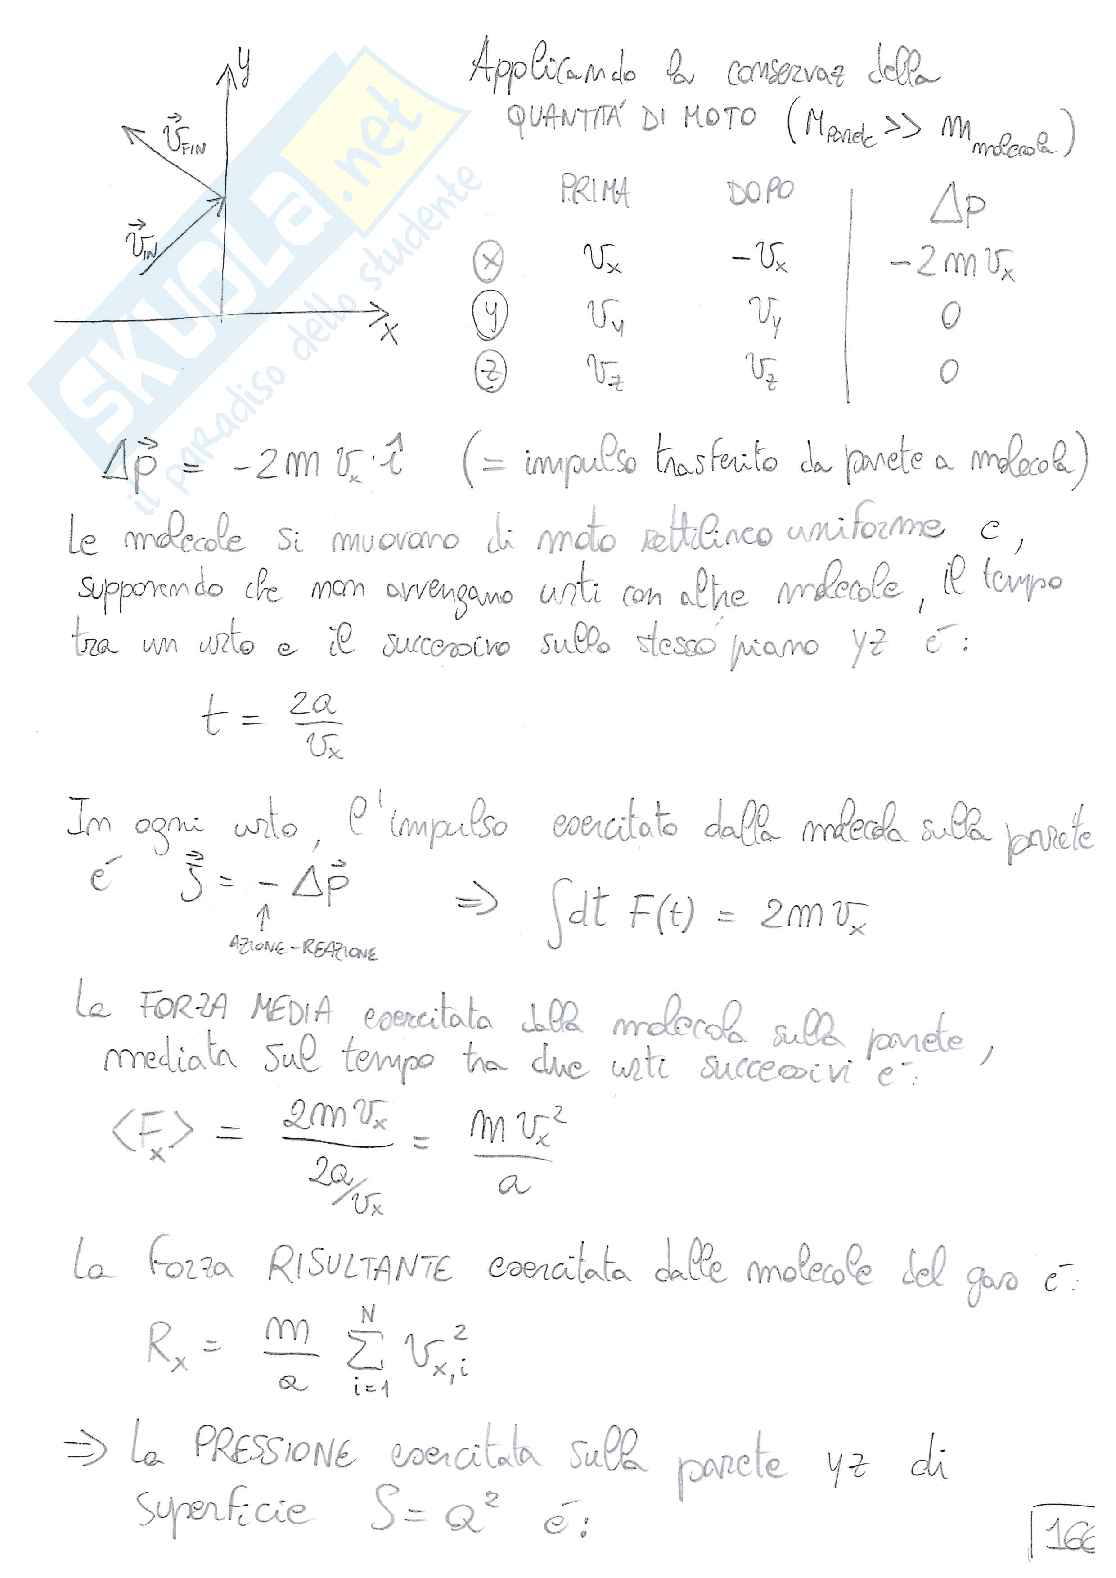 y
v⃗FIN
v⃗IN
x
Applicando la conservaz della
QUANTITÁ DI MOTO (Mparete >> mmolecola)
PRIMA DOPO Δp
x vx -vx -2mvx
y vy vy 0
z vz vz 0
SKUOLA.net
il paradiso dello studente
Δp⃗ = -2m vx·î (= impulso trasferito da parete a molecola)
Le molecole si muovono di moto rettilineo uniforme e,
supponendo che non avvengano urti con altre molecole, il tempo
tra un urto e il successivo sullo stesso piano yz é:
t = 2a/vx
In ogni urto, l'impulso esercitato dalla molecola sulla parete
é J⃗ = - Δp⃗ ⇒ ∫dt F(t) = 2mvx
↑
AZIONE-REAZIONE
La FORZA MEDIA esercitata dalla molecola sulla parete,
mediata sul tempo tra due urti successivi é:
<Fx> = 2mvx / (2a/vx) = mvx² / a
La forza RISULTANTE esercitata dalle molecole del gas é:
Rx = m/a ∑i=1N vx,i²
⇒ La PRESSIONE esercitata sulla parete yz di
superficie S=a² é:
166